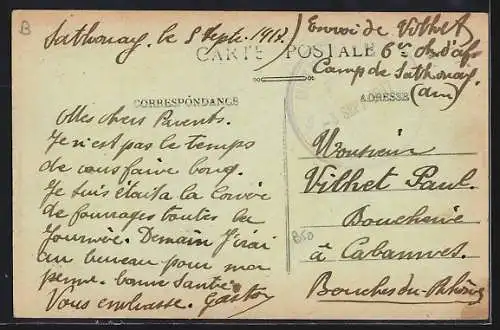 B
Sathonay. le 8 Septe. 1918.
Envoi de Vilhet
6e ch. d'af
Camp de Sathonay.
(Ain)
CARTE POSTALE
CORRESPONDANCE
ADRESSE
Mes chers Parents.
Je n'est pas le temps
de vous faire long.
Je suis était a la corvée
de fourrages toutes la
Journée. Demain J'irai
au bureau pour ma
perme. bonne Santé.
Vous embrasse. Gaston
Monsieur
Vilhet Paul.
Boucherie
à Cabannes.
Bouches du Rhône
B50